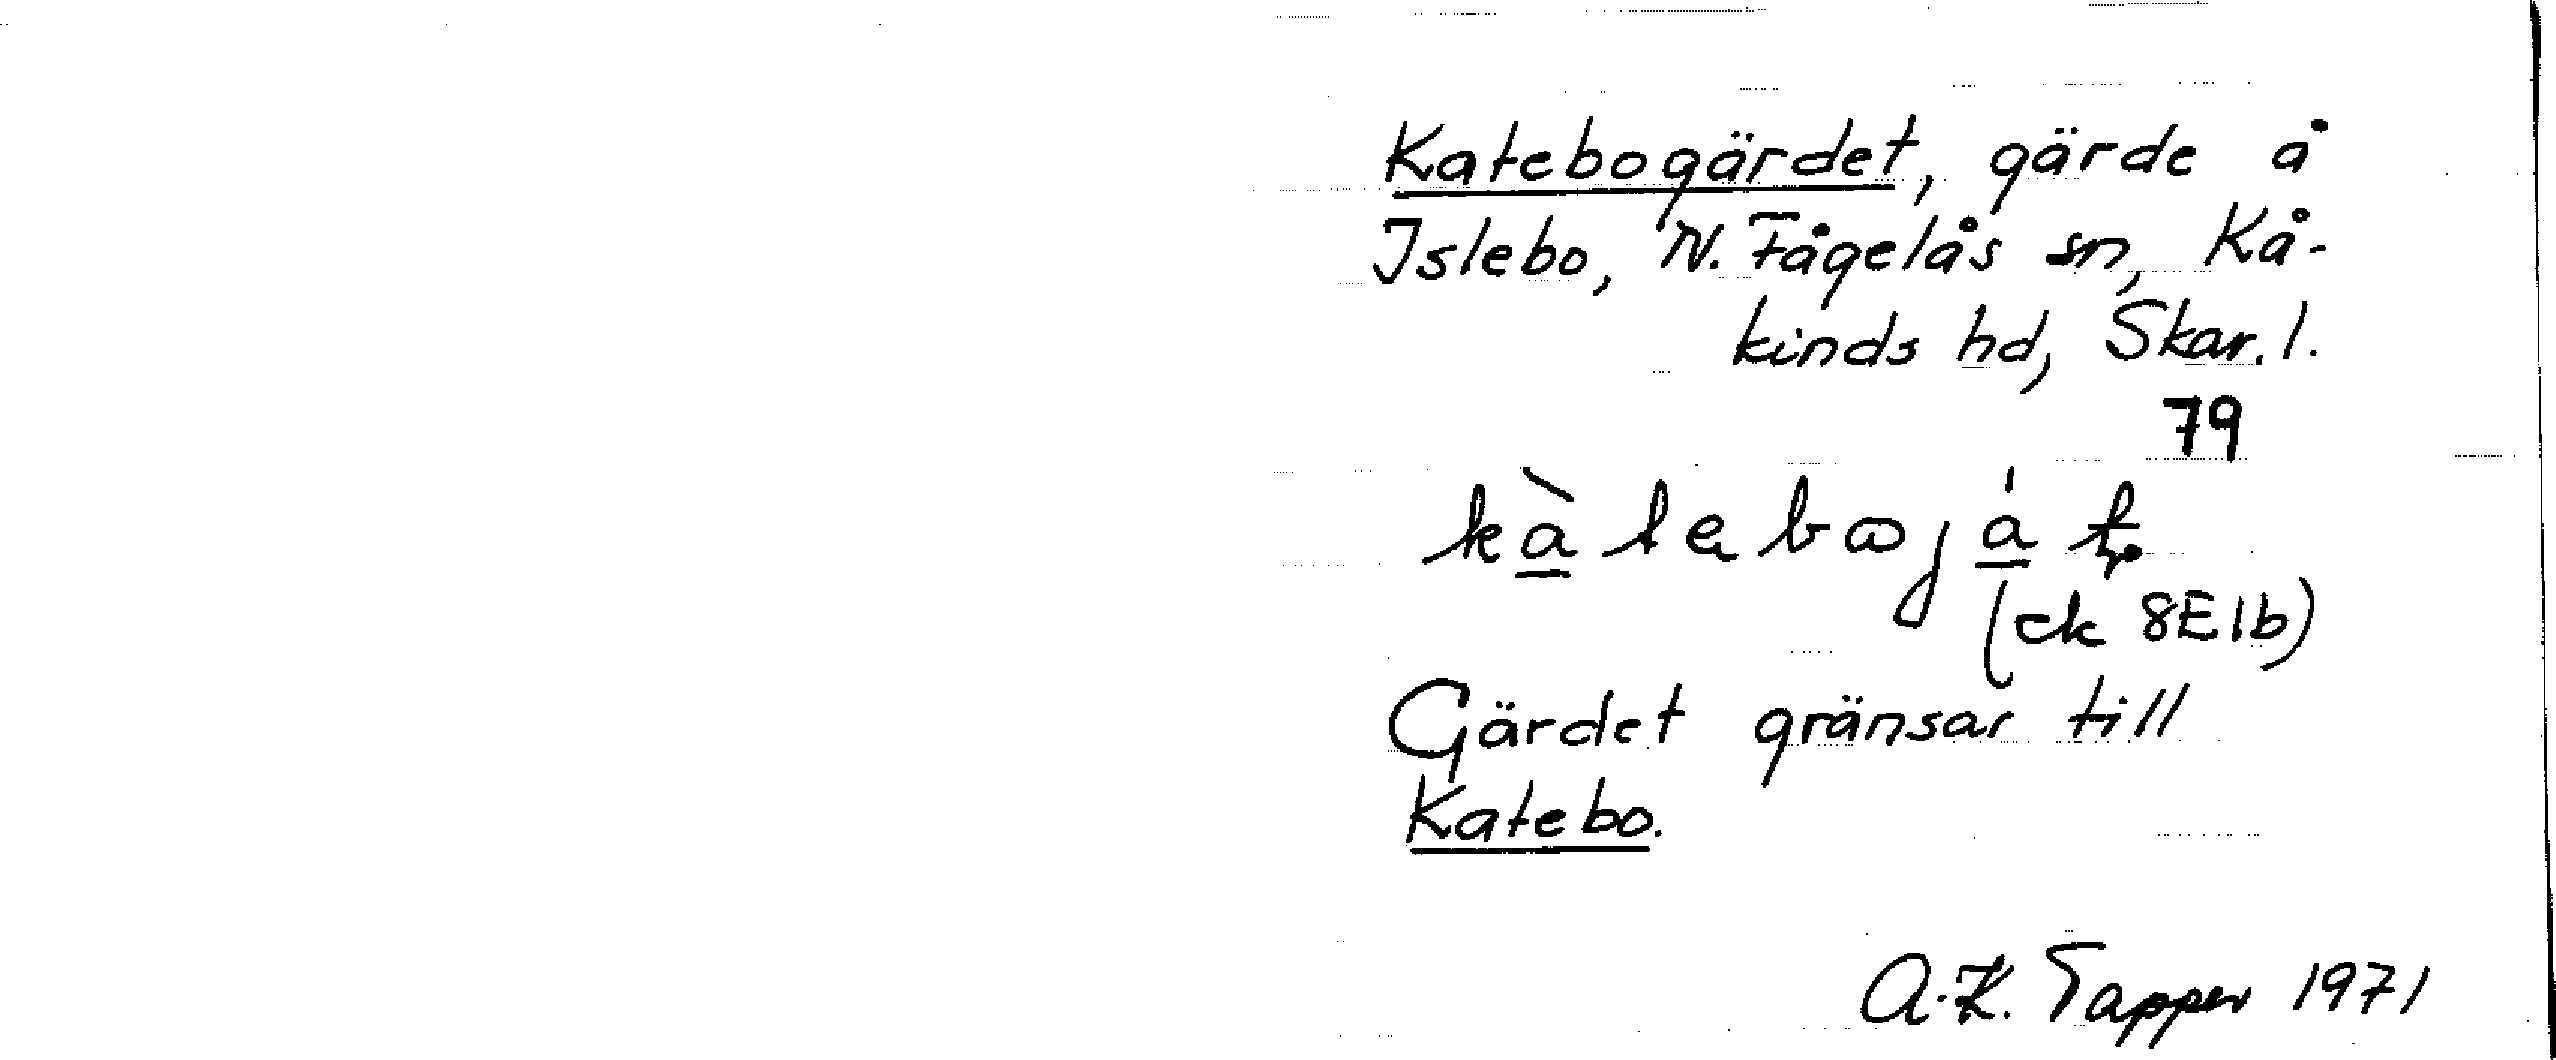 Katebogärdet, gärde å
Islebo, N. Fågelås sn, Kå-
kinds hd, Skar. l.
79
(ek 8E1b)
Gärdet gränsar till
Katebo.
A.-K. Tapper 1971